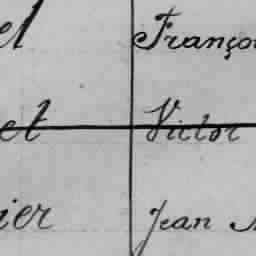 el Franço
et Victor
ier Jean